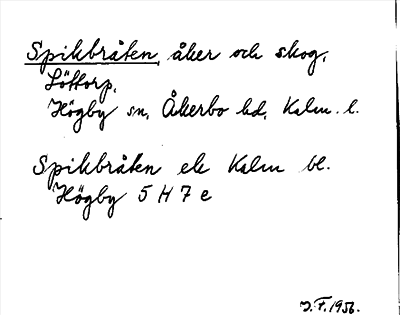 Spikbråten, åker och skog,
Löttorp,
Högby sn, Åkerbo hd, Kalm. l.
Spikbråten ek Kalm bl.
Högby 5 H 7 e
J. F. 1956.